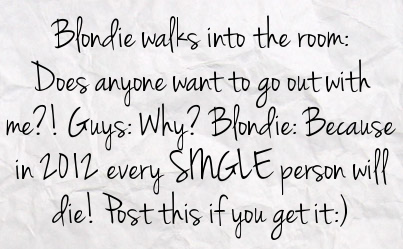 Blondie walks into the room:
Does anyone want to go out with
me?! Guys: Why? Blondie: Because
in 2012 every SINGLE person will
die! Post this if you get it:)